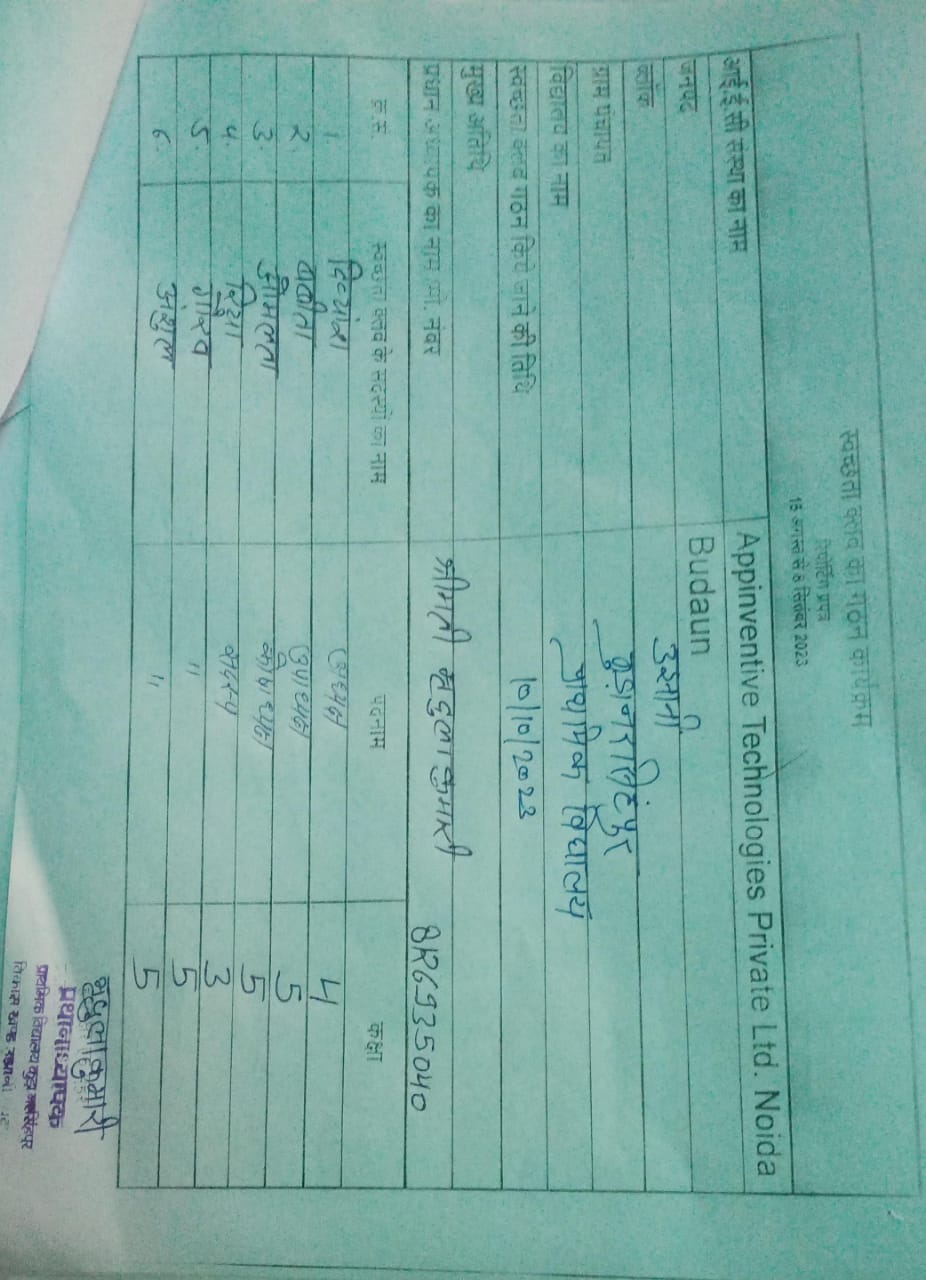 स्वच्छता क्लब का गठन कार्यक्रम
रिपोर्टिंग प्रपत्र
15 अगस्त से 8 सितंबर 2023
आई.ई.सी संस्था का नाम Appinventive Technologies Private Ltd. Noida
जनपद Budaun
ब्लॉक उझानी
ग्राम पंचायत
विद्यालय का नाम प्राथमिक विद्यालय
स्वच्छता क्लब गठन किये जाने की तिथि 10/10/2023
मुख्य अतिथि
प्रधान अध्यापक का नाम मो. नंबर श्रीमती मृदुला कुमारी
क्र.सं. स्वच्छता क्लब के सदस्यों का नाम पदनाम कक्षा
1. दिव्यांश अध्यक्ष 4
२ उपाध्यक्ष 5
३. कोषाध्यक्ष 5
४. सदस्य 3
५ गौरव " 5
६ अंशुल " 5
मृदुला कुमारी
प्रधानाध्यापक
प्राथमिक विद्यालय